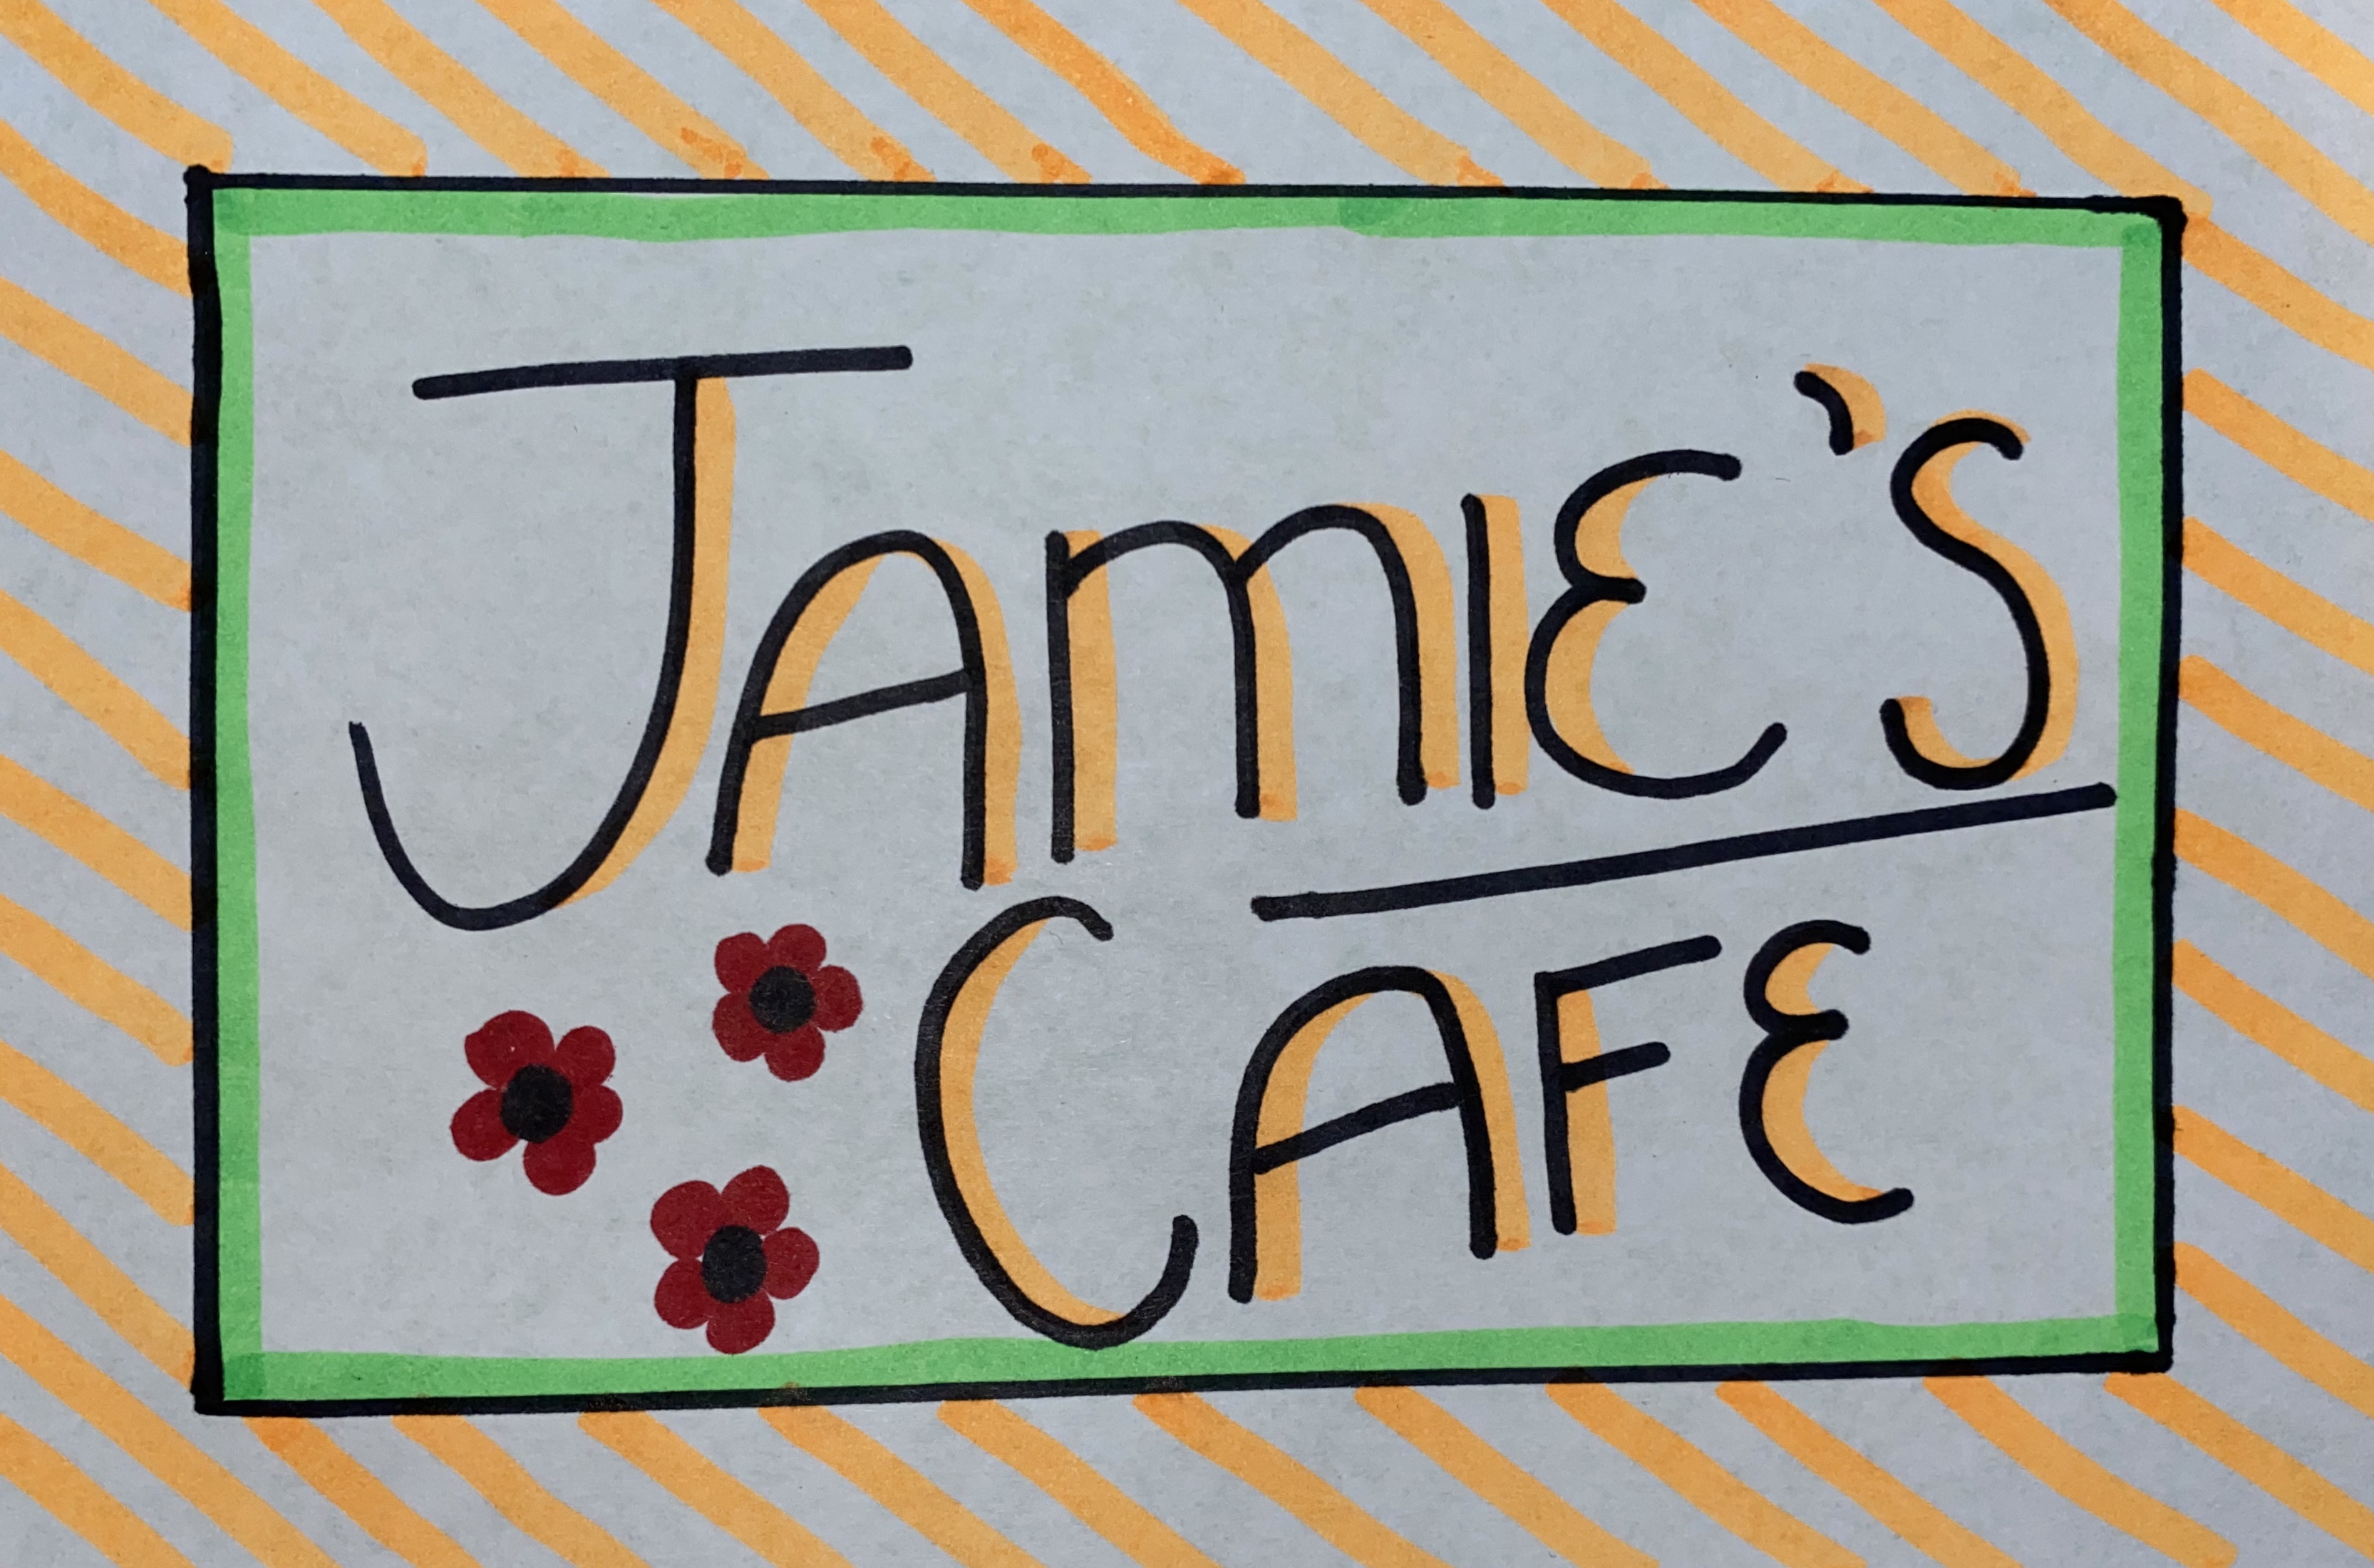 JAMIE'S
CAFE